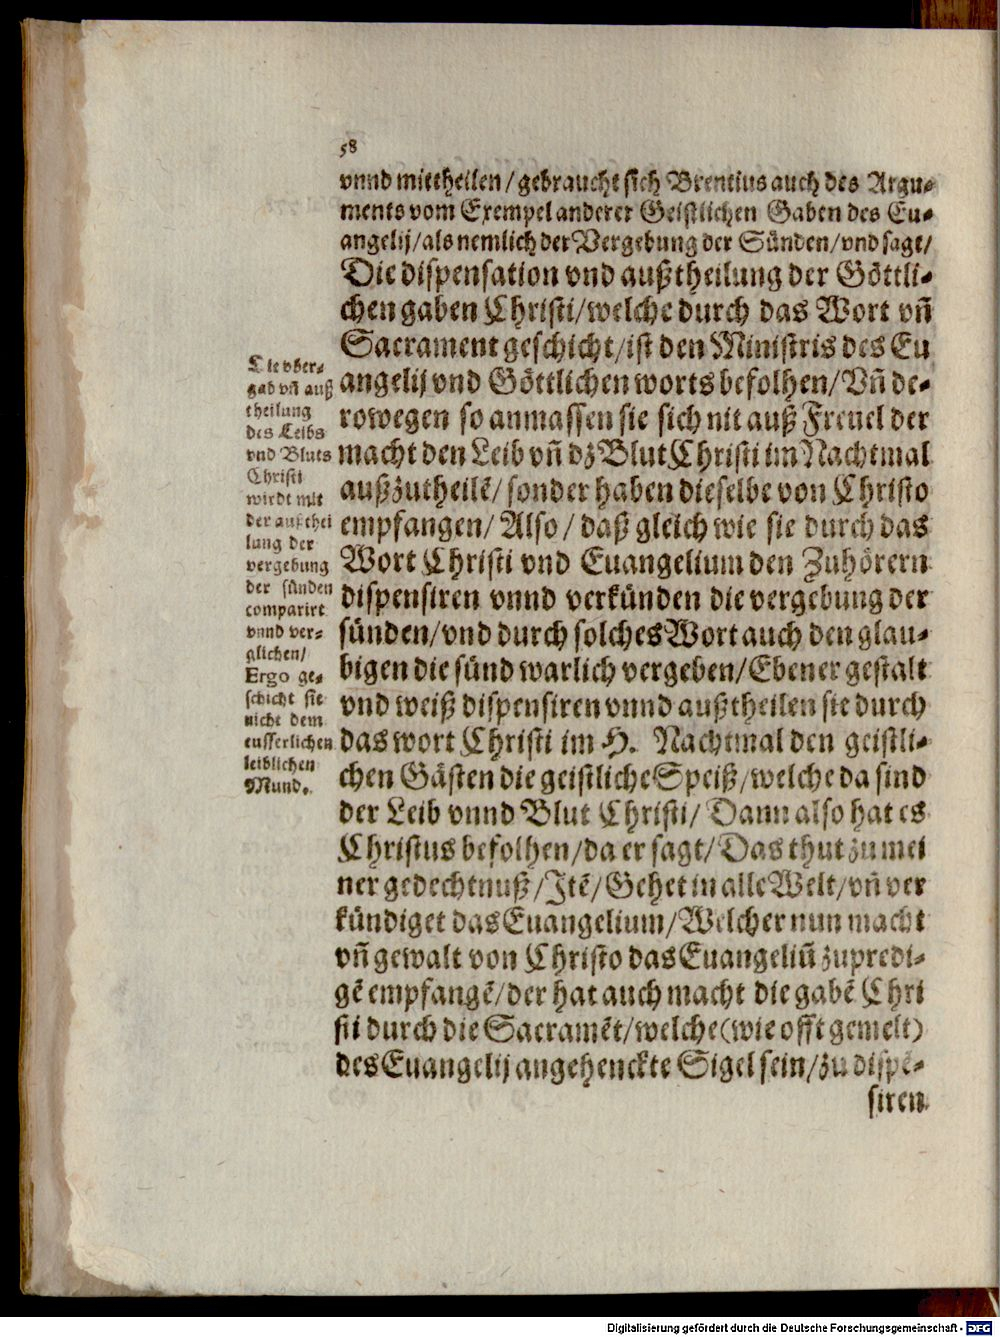 58
vnnd mittheilen/gebraucht sich Brentius auch des Argu-
ments vom Exempel anderer Geistlichen Gaben des Eu-
angelij/als nemlich der Vergebung der Sünden/vnd sagt/
Die dispensation vnd außtheilung der Göttli-
chen gaben Christi/welche durch das Wort vñ
Sacrament geschicht/ist den Ministris des Eu
angelij vnd Göttlichen worts befolhen/Vñ de-
rowegen so anmassen sie sich nit auß Freuel der
macht den Leib vñ dz Blut Christi im Nachtmal
außzutheilē/sonder haben dieselbe von Christo
empfangen/Also/daß gleich wie sie durch das
Wort Christi vnd Euangelium den Zuhörern
dispensiren vnnd verkünden die vergebung der
sünden/vnd durch solches Wort auch den glau-
bigen die sünd warlich vergeben/Ebener gestalt
vnd weiß dispensiren vnnd außtheilen sie durch
das wort Christi im H. Nachtmal den geistli-
chen Gästen die geistliche Speiß/welche da sind
der Leib vnnd Blut Christi/Dann also hat es
Christus befolhen/da er sagt/Das thut zu mei
ner gedechtnuß/Itē/Gehet in alle Welt/vñ ver
kündiget das Euangelium/Welcher nun macht
vñ gewalt von Christo das Euangeliū zupredi-
gē empfangē/der hat auch macht die gabē Chri
sti durch die Sacramēt/welche (wie offt gemelt)
des Euangelij angehenckte Sigel sein/zu dispē-
siren
Die vber-
gab vñ auß
theilung
des Leibs
vnd Bluts
Christi
wirdt mit
der außthei
lung der
vergebung
der sünden
comparirt
vnnd ver-
glichen/
Ergo ge-
schicht sie
nicht dem
eusserlichen
leiblichen
Mund.
Digitalisierung gefördert durch die Deutsche Forschungsgemeinschaft - DFG